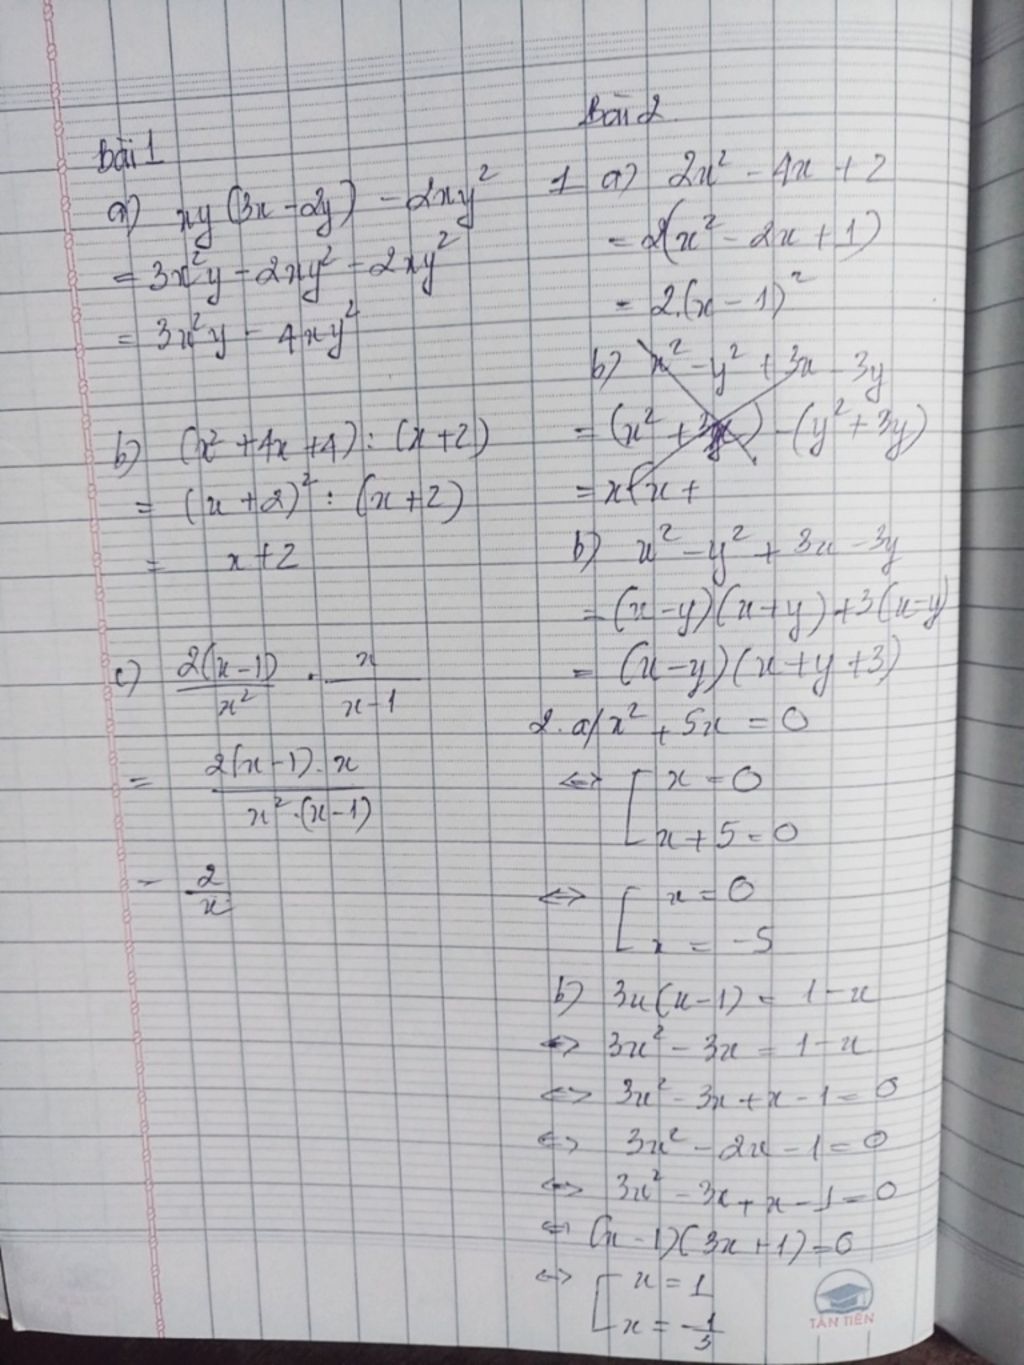 Bài 1
a) xy(3x - 2y) - 2xy²
= 3x²y - 2xy² - 2xy²
= 3x²y - 4xy²
b) (x² + 4x + 4) : (x + 2)
= (x + 2)² : (x + 2)
= x + 2
c) 2(x - 1)/x² . x/(x - 1)
= 2(x - 1).x/x².(x - 1)
= 2/x
Bài 2
1 a) 2x² - 4x + 2
= 2(x² - 2x + 1)
= 2.(x - 1)²
b) x² - y² + 3x - 3y
= (x² + 3x) - (y² + 3y)
= x(x +
b) x² - y² + 3x - 3y
= (x - y)(x + y) + 3(x - y)
= (x - y)(x + y + 3)
2. a/ x² + 5x = 0
<=> [ x = 0
x + 5 = 0
<=> [ x = 0
x = -5
b) 3x(x - 1) = 1 - x
<=> 3x² - 3x = 1 - x
<=> 3x² - 3x + x - 1 = 0
<=> 3x² - 2x - 1 = 0
<=> 3x² - 3x + x - 1 = 0
<=> (x - 1)(3x + 1) = 0
<=> [ x = 1
x = -1/3
TÂN TIẾN